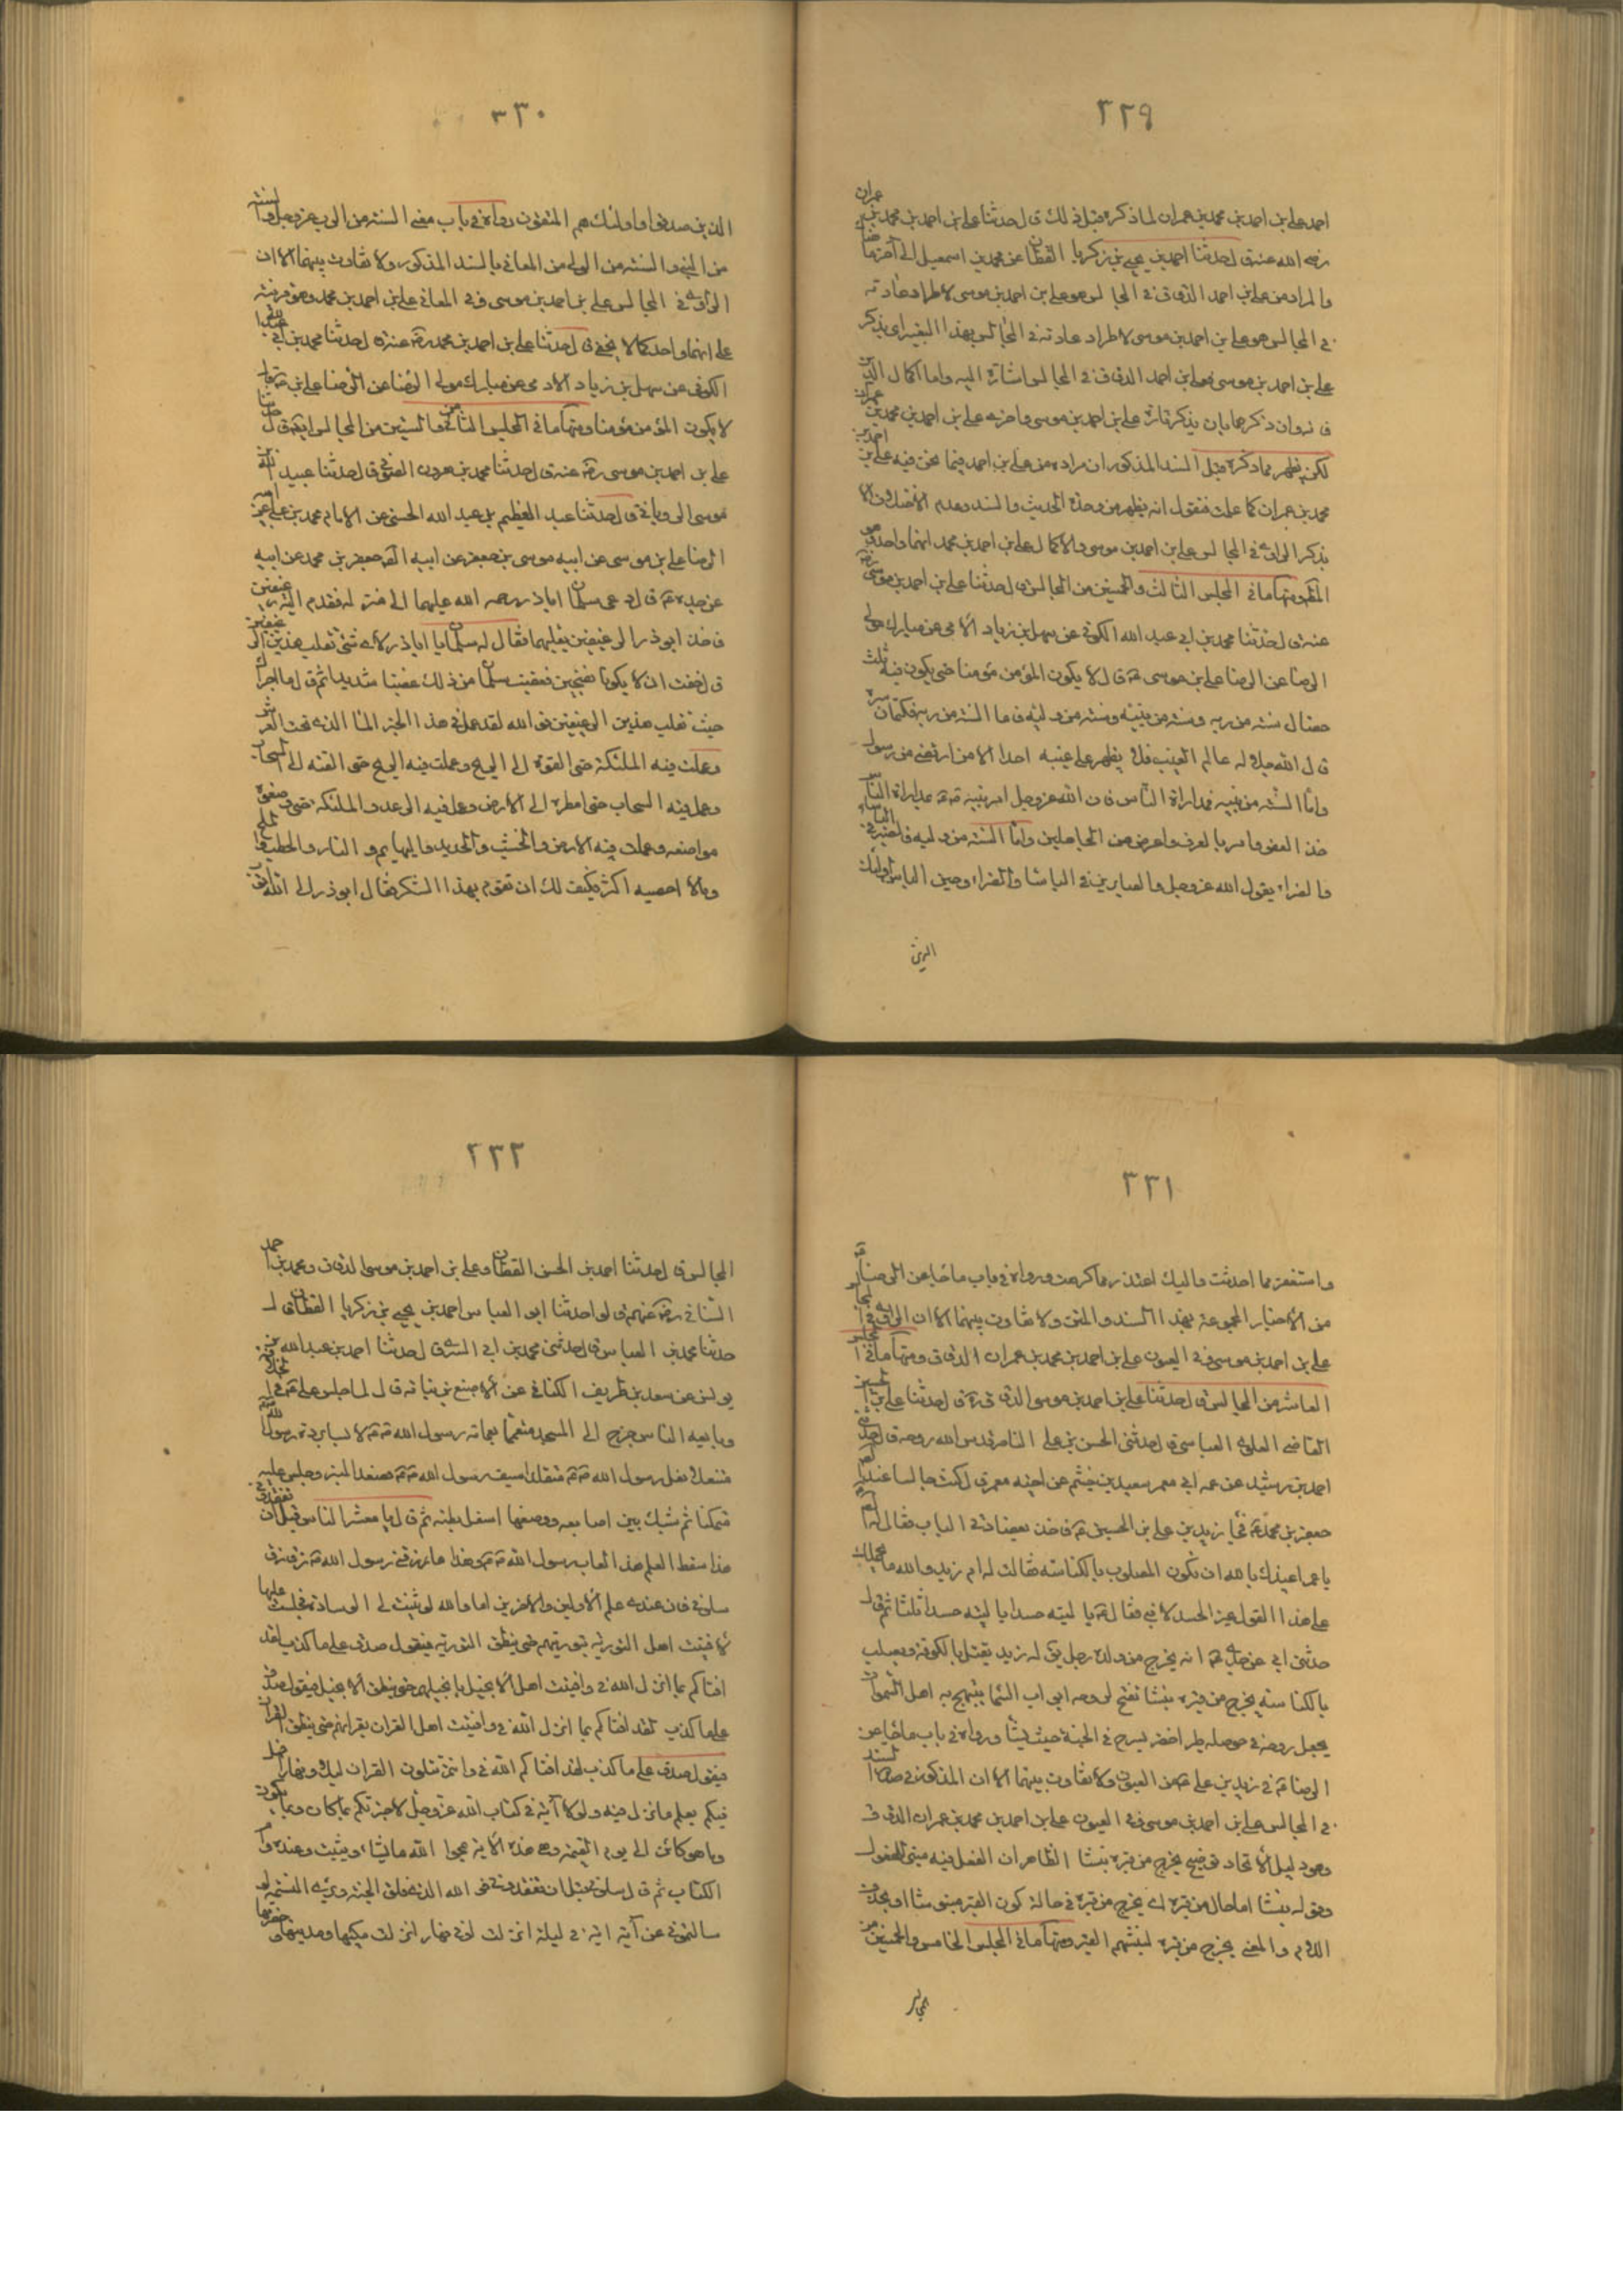 ٢٢٩
احمد علي بن احمد بن محمد بن عمران لما ذكره قبل ذلك قال حدثنا علي بن احمد بن محمد بن عمران
رضي الله عنه قال حدثنا احمد بن يحيى بن زكريا القطان عن محمد بن اسمعيل الى آخر
والمراد من علي بن احمد الدقاق في المجالس هو علي بن احمد بن موسى لاطراد عادته
في المجالس هو علي بن احمد بن موسى لاطراد عادته في المجالس بهذا التعبير اي بذكر
علي بن احمد بن موسى فعلي بن احمد الدقاق في المجالس اشارة اليه واما اكمال الدين
فانه وان ذكرهما بان يذكر تارة علي بن احمد بن موسى واخرى علي بن احمد بن محمد بن عمران
لكن يظهر مما ذكره قبل السند المذكور ان مراده من علي بن احمد فيما نحن فيه علي بن احمد بن
محمد بن عمران كما علمت فنقول انه يظهر من وحدة الحديث والسند وعدم الاختلاف الا
بذكر الراوي في المجالس علي بن احمد بن موسى والاكمال علي بن احمد بن محمد انهما واحد
ومنها ما في المجلس الثالث والخمسين من المجالس قال حدثنا علي بن احمد بن موسى رضي
عنه قال حدثنا محمد بن ابي عبد الله الكوفي عن سهل بن زياد الادمي عن مبارك مولى
الرضا عن الرضا علي بن موسى ع قال لا يكون المؤمن مؤمنا حتى يكون فيه ثلث
خصال سنة من ربه وسنة من نبيه وسنة من وليه فاما السنة من ربه فكتمان سره
قال الله جل جلاله عالم الغيب فلا يظهر على غيبه احدا الا من ارتضى من رسول
واما السنة من نبيه فمداراة الناس فان الله عز وجل امر نبيه ص بمداراة الناس
خذ العفو وامر بالعرف واعرض عن الجاهلين واما السنة من وليه فالصبر في الباساء
والضراء يقول الله عز وجل والصابرين في الباساء والضراء وحين الباس اولئك
الذين
٢٣٠
الذين صدقوا واولئك هم المتقون ورواه في باب معنى السنة من الرب عز وجل والسنة
من النبي والسنة من الولي من المعاني بالسند المذكور ولا تفاوت بينهما الا ان
الراوي في المجالس علي بن احمد بن موسى وفي المعاني علي بن احمد بن محمد وهو قرينة
على انهما واحد كما لا يخفى قال حدثنا علي بن احمد بن محمد رضي عنه قال حدثنا محمد بن ابي عبد الله
الكوفي عن سهل بن زياد الادمي عن مبارك مولى الرضا عن الرضا علي بن موسى
لا يكون المؤمن مؤمنا ومنها ما في المجلس الثامن والستين من المجالس ايضا قال حدثنا
علي بن احمد بن موسى رضي عنه قال حدثنا محمد بن هرون الصوفي قال حدثنا عبيد الله
موسى الروياني قال حدثنا عبد العظيم بن عبد الله الحسني عن الامام محمد بن علي عن ابيه
الرضا علي بن موسى عن ابيه موسى بن جعفر عن ابيه الصادق جعفر بن محمد عن ابيه
عن جده ع قال دعى سلمان اباذر رحمه الله عليهما الى منزله فقدم اليه رغيفين
فاخذ ابوذر الرغيفين يقلبهما فقال له سلمان يا اباذر لاي شئ تقلب هذين الرغيفين
قال خفت ان لا يكونا نضيجين فغضب سلمان من ذلك غضبا شديدا ثم قال ما اجراك
حيث تقلب هذين الرغيفين فوالله لقد عمل في هذا الخبز الماء الذي تحت العرش
وعملت فيه الملئكة حتى القوه الى الريح وعملت فيه الريح حتى القته الى السحاب
وعمل فيه السحاب حتى امطره الى الارض وعمل فيه الرعد والملئكة حتى وضعوه
مواضعه وعملت فيه الارض والخشب والحديد والبهايم والنار والحطب والملح
وما لا احصيه اكثر فكيف لك ان تقوم بهذا الشكر فقال ابوذر الى الله اتوب
٢٣١
واستغفره مما احدثت واليك اعتذر مما كرهت ورواه في باب ما جاء عن الرضا ع
من الاخبار المجموعة بهذا السند والمتن ولا تفاوت بينهما الا ان الراوي في المجالس
علي بن احمد بن موسى وفي العيون علي بن احمد بن محمد بن عمران الدقاق ومنها ما في المجلس
العاشر من المجالس قال حدثنا علي بن احمد بن موسى الدقاق ره قال حدثنا علي بن الحسين
القاضي العلوي العباسي قال حدثني الحسن بن علي الناصر قدس الله روحه قال حدثني
احمد بن رشيد عن عمه ابي معمر سعيد بن خثيم عن اخيه معمر قال كنت جالسا عند
جعفر بن محمد ع فجاء زيد بن علي بن الحسين ع فاخذ بعضادتي الباب فقال له
يا عم اعيذك بالله ان تكون المصلوب بالكناسة فقالت له ام زيد والله ما يحملك
على هذا القول غير الحسد لابني فقال ع يا ليته حسدا يا ليته حسدا ثلثا ثم قال
حدثني ابي عن جدي ع انه يخرج من ولده رجل يقال له زيد يقتل بالكوفة ويصلب
بالكناسة يخرج من قبره نبشا تفتح لروحه ابواب السماء يبتهج به اهل السموات
يجعل روحه في حوصلة طير اخضر يسرح في الجنة حيث يشاء ورواه في باب ما جاء عن
الرضا ع في زيد بن علي ع من العيون ولا تفاوت بينهما الا ان المذكور في صدر السند
في المجالس علي بن احمد بن موسى وفي العيون علي بن احمد بن محمد بن عمران الدقاق
وهو دليل الاتحاد توضيح يخرج من قبره نبشا الظاهر ان الفعل فيه مبني للمفعول
وقوله نبشا اما حال من قبره اي يخرج من قبره في حالة كون القبر منبوشا او بحذف
اللام والمعنى يخرج من قبره لنبشهم القبر ومنها ما في المجلس الخامس والخمسين من
المجالس
٢٣٢
المجالس قال حدثنا احمد بن الحسن القطان وعلي بن احمد بن موسى الدقاق ومحمد بن احمد
السناني رضي عنهم قالوا حدثنا ابو العباس احمد بن يحيى بن زكريا القطان قال
حدثنا محمد بن العباس قال حدثني محمد بن ابي السري قال حدثنا احمد بن عبد الله بن
يونس عن سعد بن طريف الكناني عن الاصبغ بن نباته قال لما جلس علي ع في الخلافة
وبايعه الناس خرج الى المسجد متعمما بعمامة رسول الله ص لابسا بردة رسول الله
متنعلا نعل رسول الله ص متقلدا سيف رسول الله ص فصعد المنبر وجلس عليه
متمكنا ثم شبك بين اصابعه ووضعها اسفل بطنه ثم قال يا معشر الناس قبل ان تفقدوني
هذا سفط العلم هذا لعاب رسول الله ص هذا ما زقني رسول الله ص زقا زقا
سلوني فان عندي علم الاولين والاخرين اما والله لو ثنيت لي الوسادة فجلست عليها
لافتيت اهل التورية بتوريتهم حتى ينطق التورية فيقول صدق علي ما كذب لقد
افتاكم بما انزل الله في وافتيت اهل الانجيل بانجيلهم حتى ينطق الانجيل فيقول صدق
علي ما كذب لقد افتاكم بما انزل الله في وافتيت اهل القران بقرانهم حتى ينطق القران
فيقول صدق علي ما كذب لقد افتاكم الله في وانتم تتلون القران ليلا ونهارا فهل
فيكم يعلم ما نزل فيه ولولا آية في كتاب الله عز وجل لاخبرتكم بما كان وبما يكون
وما هو كائن الى يوم القيمة وهي هذه الاية يمحوا الله ما يشاء ويثبت وعنده ام
الكتاب ثم قال سلوني قبل ان تفقدوني فوالله الذي فلق الحبة وبرء النسمة لو
سالتموني عن آية اية في ليلة انزلت او في نهار انزلت مكيها ومدنيها